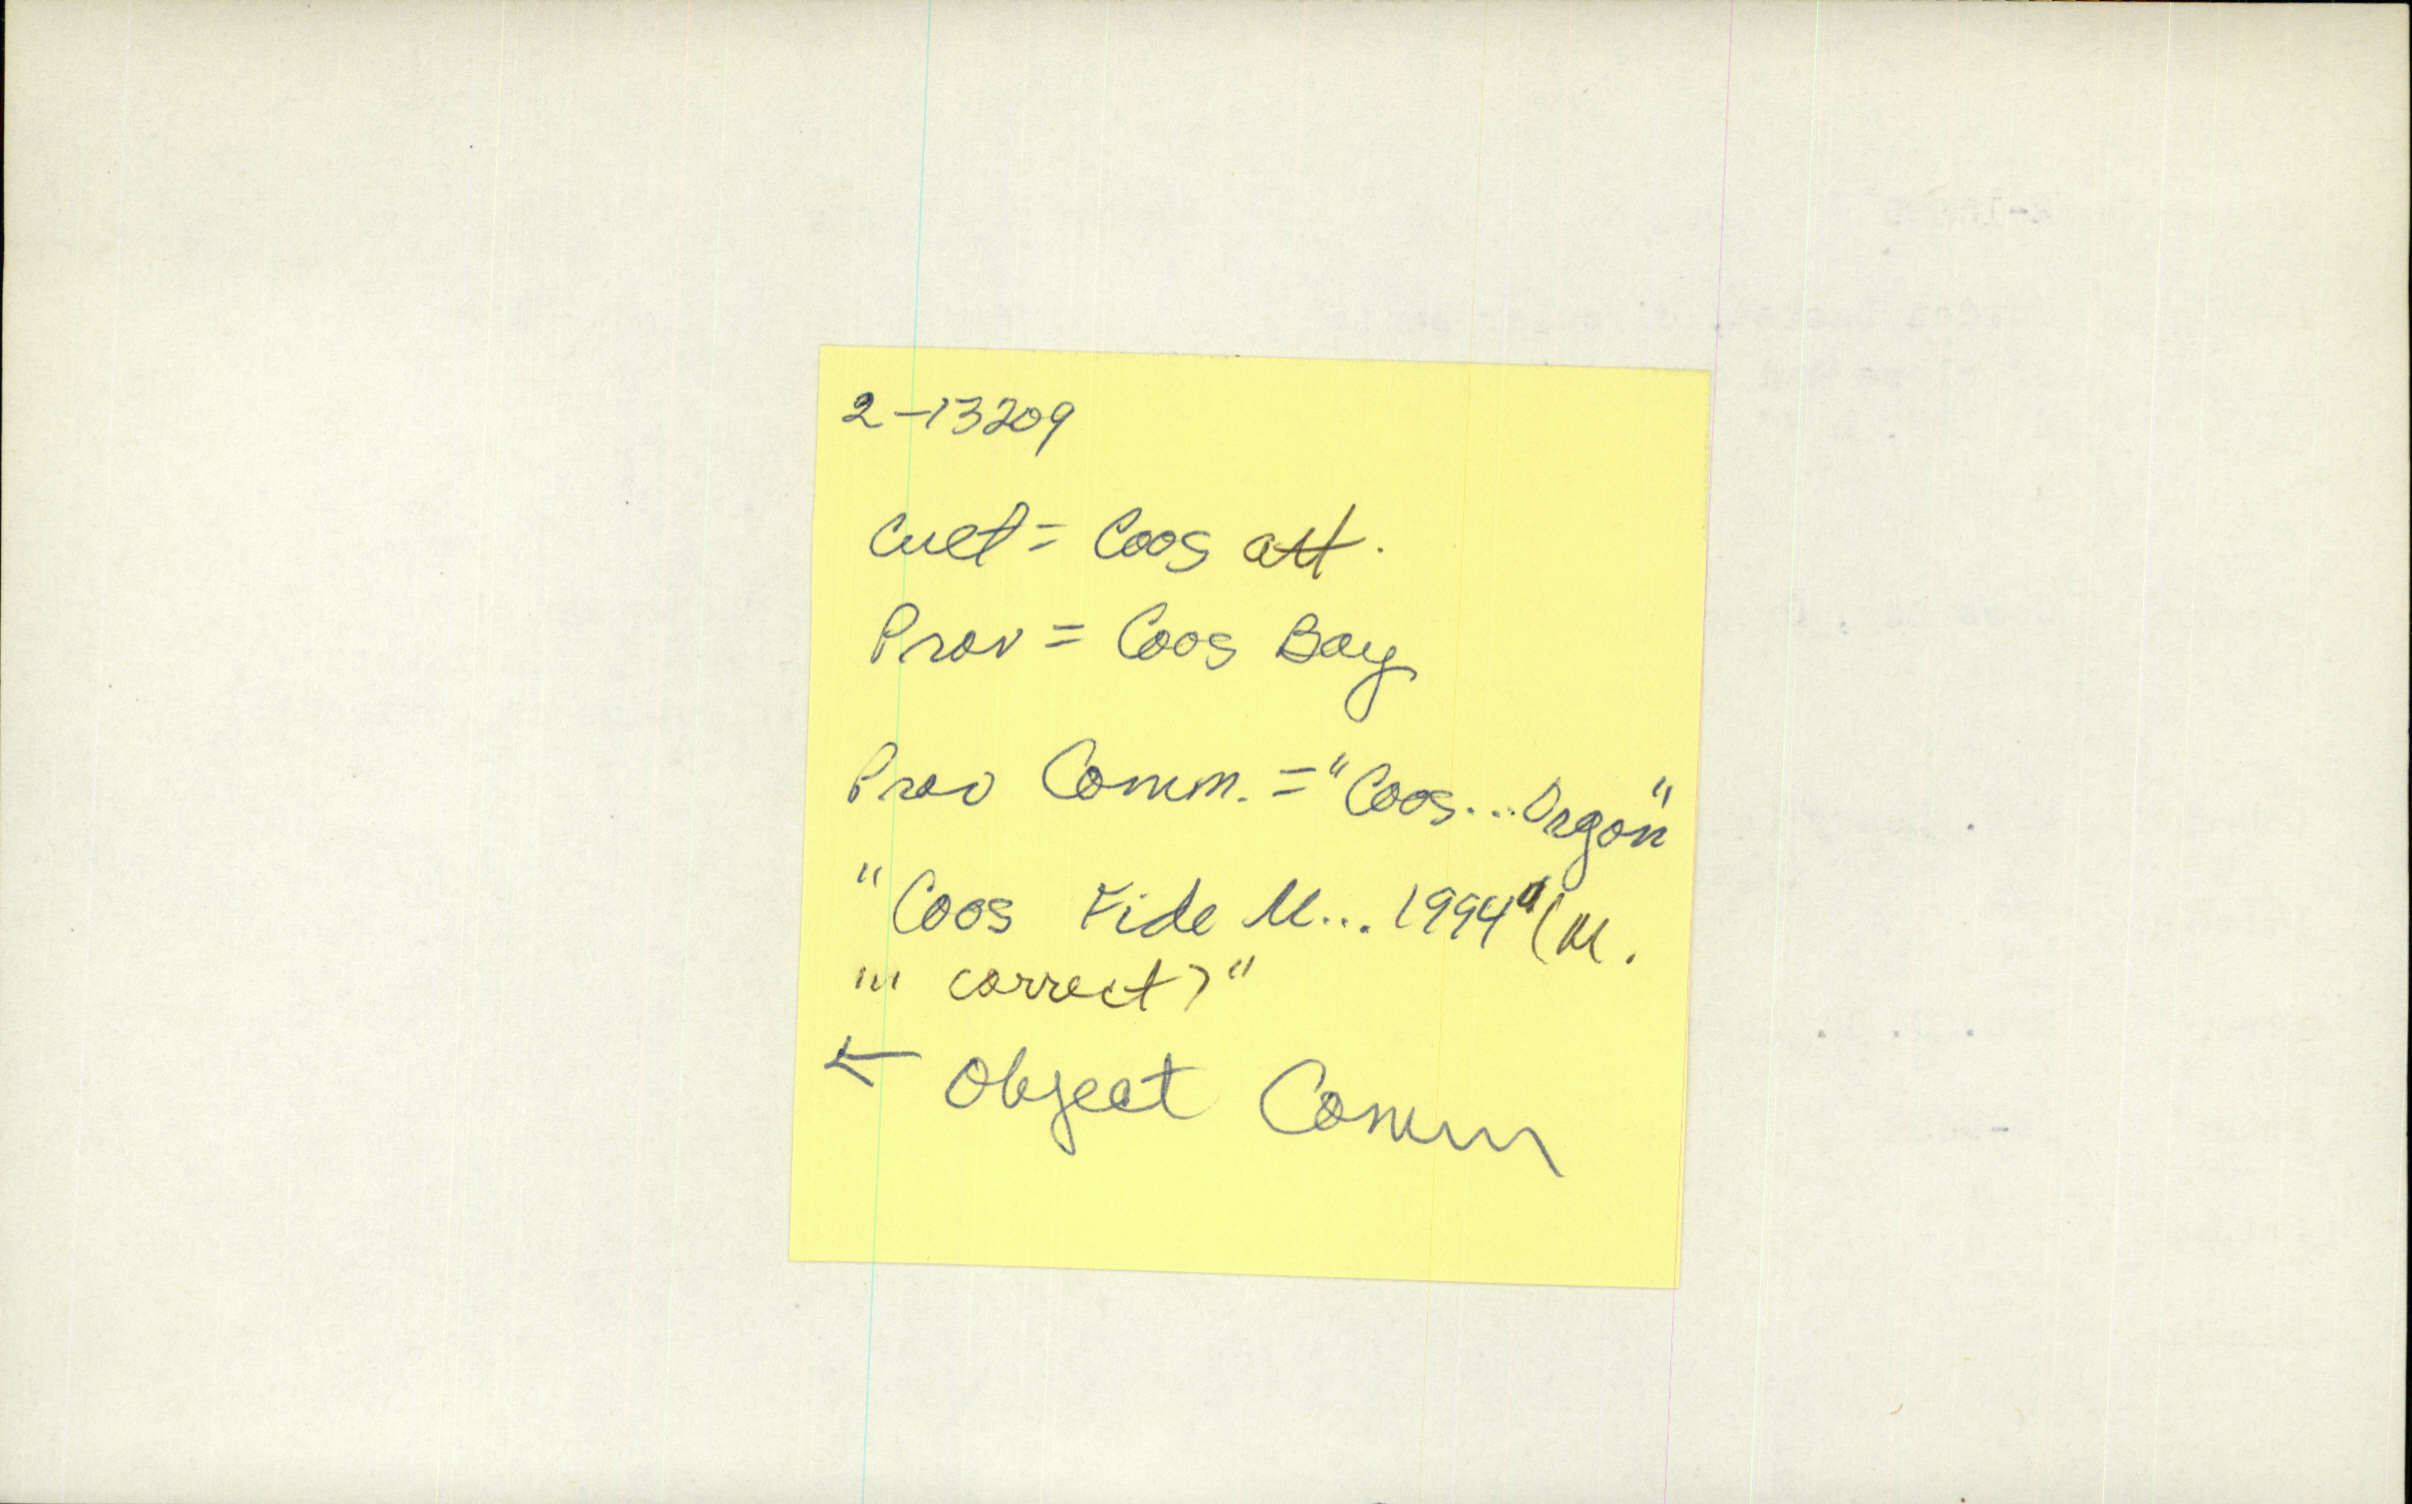 2-13209
Cult = Coos att.
Prov = Coos Bay
Prov Comm. = "Coos...Orgon"
"Coos Fide M... 1994" (M.
"' correct)"
← Object Comm